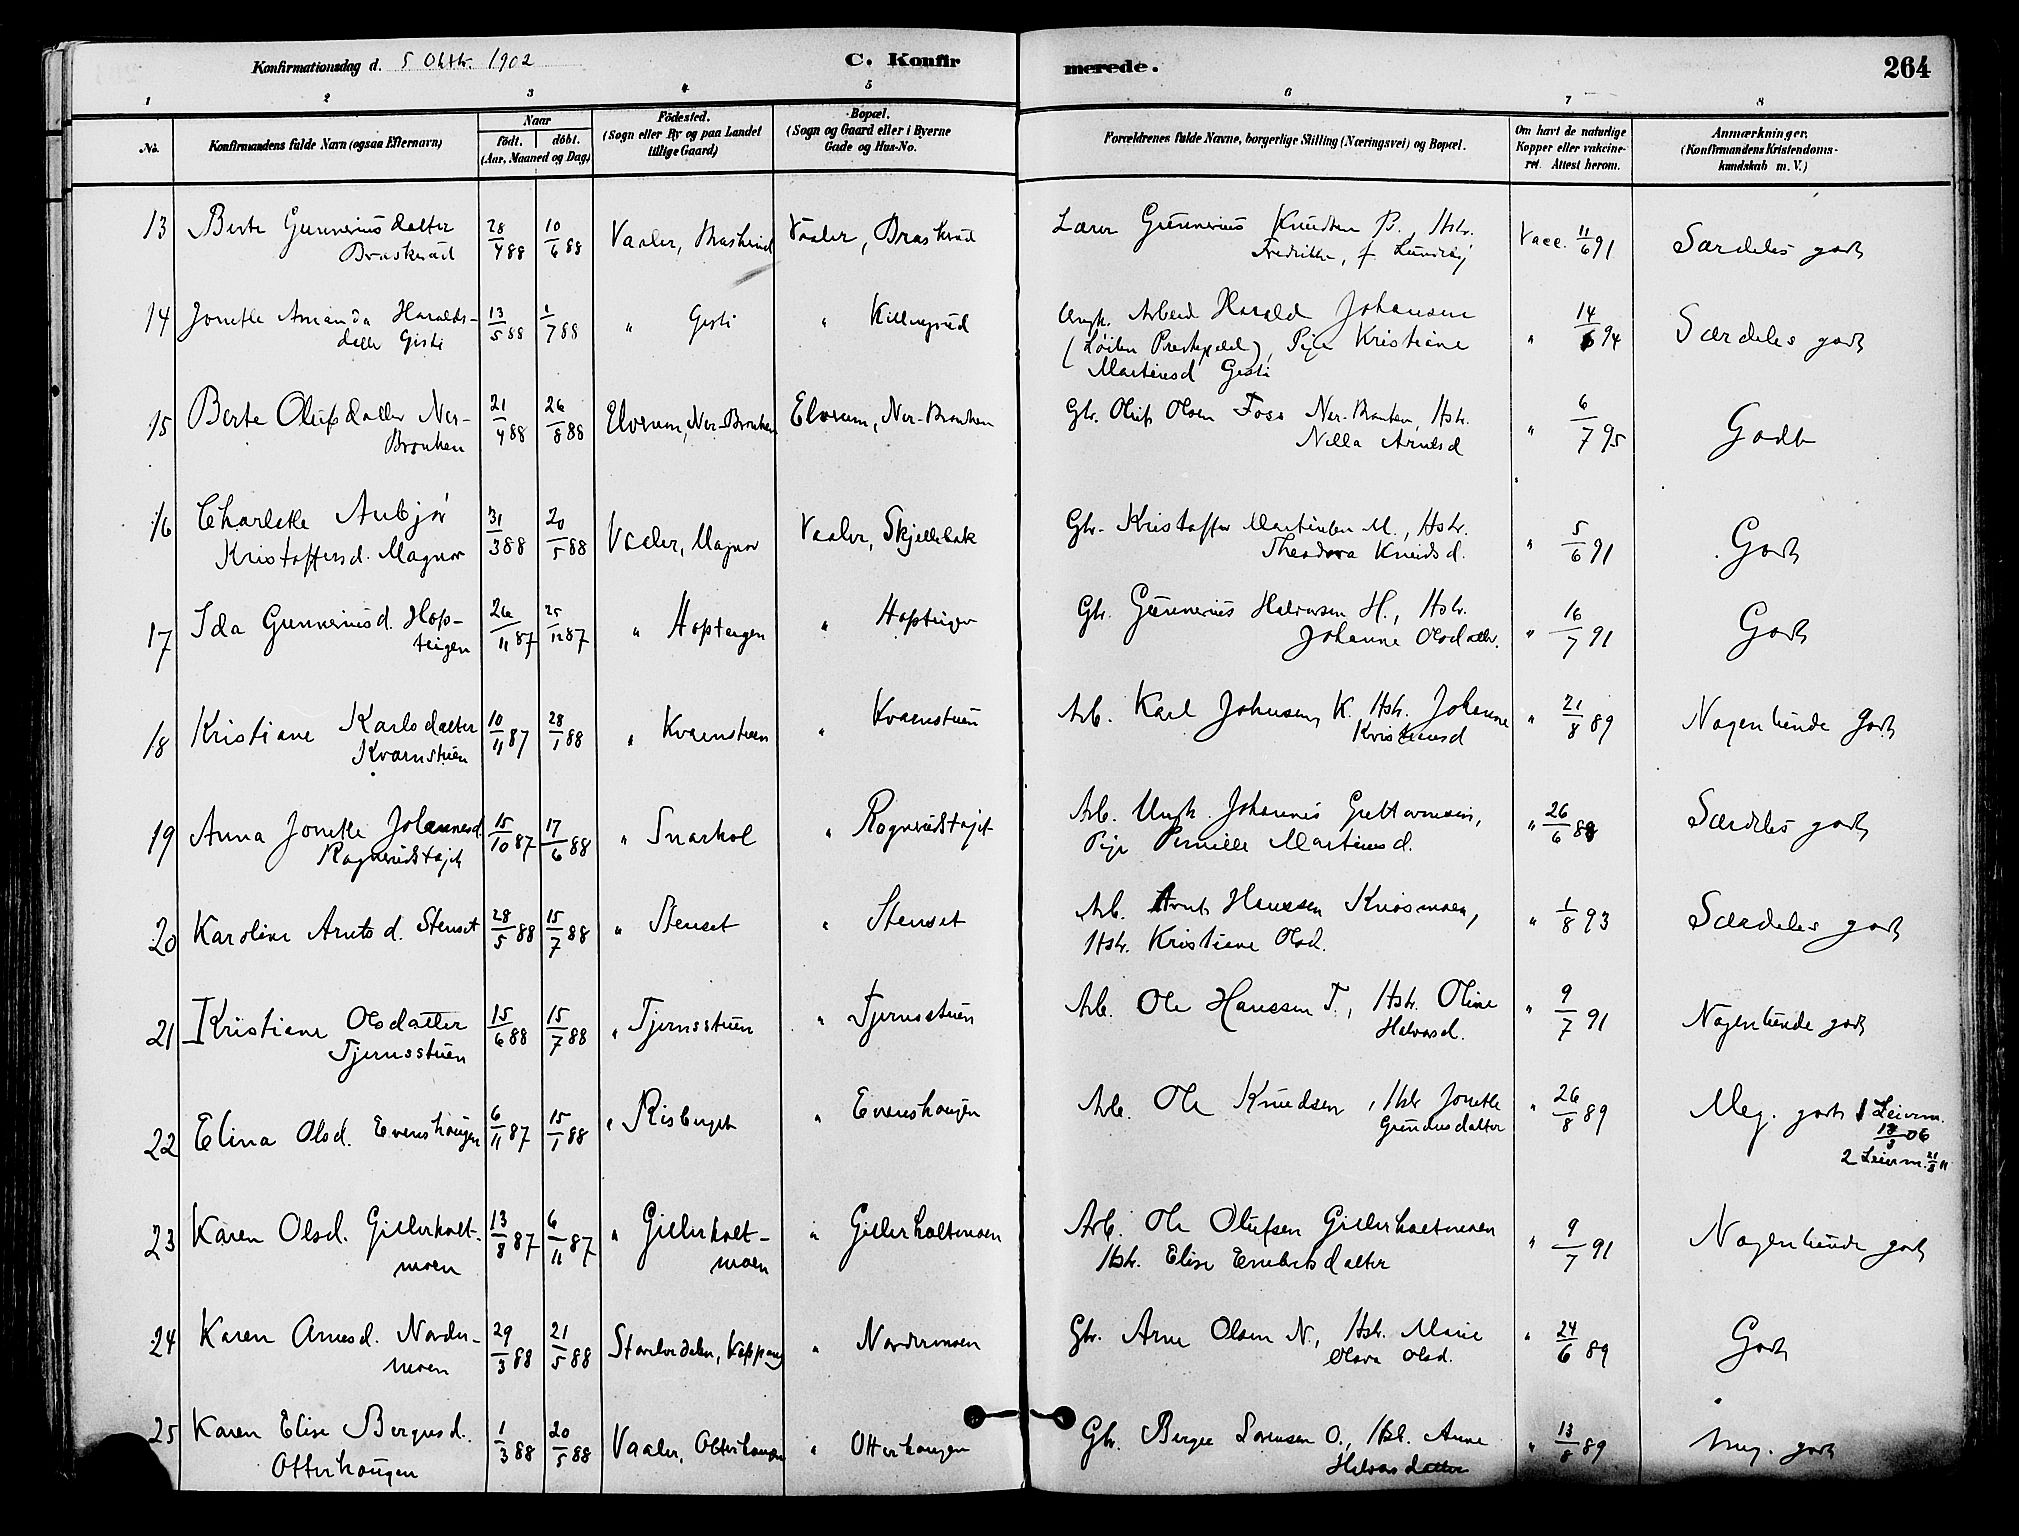 Konfirmationsdag d. 5 Oktbr. 1902
C. Konfirmerede.
264
1 2 3 4 5 6 7 8
No.
Konfirmandens fulde Navn (ogsaa Efternavn)
Naar
födt. döbt.
(Aar, Maaned og Dag)
Födested.
(Sogn eller By og paa Landet
tillige Gaard)
Bopæl.
(Sogn og Gaard eller i Byerne
Gade og Hus-No.
Forældrenes fulde Navne, borgerlige Stilling (Næringsvei) og Bopæl.
Om havt de naturlige
Kopper eller vakcine-
ret. Attest herom.
Anmærkninger.
(Konfirmandens Kristendoms-
kundskab m. V.)
13 Berte Gunneriusdatter 28/4 88 10/6 88 Vaaler, Braskerud Vaaler, Braskerud Lærer Gunnerius Knudsen B., Hstr. Vacc. 11/6 91 Særdeles godt
Braskerud Fredrikke, f. Lundby
14 Jonette Amanda Haralds- 13/5 88 1/7 88 " Gisti " Killingrud Ungk. Arbeid Harald Johansen " 14/6 94 Særdeles godt
datter Gisti (Løiten Prestegjeld), Pige Kristiane
Martinusd Gisti
15 Berte Olufsdatter Ner- 21/4 88 26/8 88 Elverum, Ner-Bronken Elverum, Ner-Bronken Gbr. Oluf Olsen Foss Ner-Bronken, Hstr. " 6/7 95 Godt
Bronken Nella Arnesd
16 Charlotte Aubjør 31/3 88 20/5 88 Vaaler, Magnor Vaaler, Skjellebæk Gbr. Kristoffer Martinsen M., Hstr. " 5/6 91 Godt
Kristoffersd. Magnor Theodora Knudsd.
17 Ida Gunneriusd. Hop- 26/11 87 25/12 87 " Hopteigen " Hopteigen Gbr. Gunnerius Halvorsen H., Hstr. " 16/7 91 Godt
teigen Johanne Olsdatter.
18 Kristiane Karlsdatter 10/11 87 28/1 88 " Kvernstuen " Kvernstuen Arb. Karl Johnsen K. Hstr. Johanne " 21/8 89 Nogenlunde godt
Kvernstuen Kristiansd
19 Anna Jonette Johannesd. 15/10 87 17/6 88 " Snarhol " Rognerudstøjet Arb. Ungk. Johannes Guttormsen, " 26/6 88 Særdeles godt
Rognerudstøjet Pige Pernille Martinusd.
20 Karoline Arntsd. Stenset 28/5 88 15/7 88 " Stenset " Stenset Arb. Arnt Hanssen Knosmoen, " 1/8 93 Særdeles godt
Hstr. Kristiane Olsd.
21 Kristiane Olsdatter 15/6 88 15/7 88 " Tjernsstuen " Tjernsstuen Arb. Ole Hanssen T., Hstr. Oline " 9/7 91 Nogenlunde godt
Tjernsstuen Halvorsd.
22 Elina Olsd. Evenshaugen 6/11 87 15/1 88 " Risberget " Evenshaugen Arb. Ole Knudsen, Hstr Jonette " 26/8 89 Meg. godt 1 Leierm.
Gundersdatter 18/3 06
2 Leierm. 21/8 11
23 Karen Olsd. Gillerholt- 13/8 87 6/11 87 " Gillerholt- " Gillerholtmoen Arb. Ole Olufsen Gillerholtmoen " 9/7 91 Nogenlunde godt
moen moen Hstr. Elise Embretsdatter
24 Karen Arnesd. Norder- 29/3 88 21/5 88 Storelvedalen, Koppang " Nordermoen Gbr. Arne Olsen N., Hstr. Marie " 24/6 89 Godt
moen Olava Olsd.
25 Karen Elise Bergersd. 1/3 88 20/5 88 Vaaler, Otterhaugen " Otterhaugen Gbr. Berger Sorensen O., Hstr. Anne " 13/8 89 Meg. godt
Otterhaugen Halvorsdatter